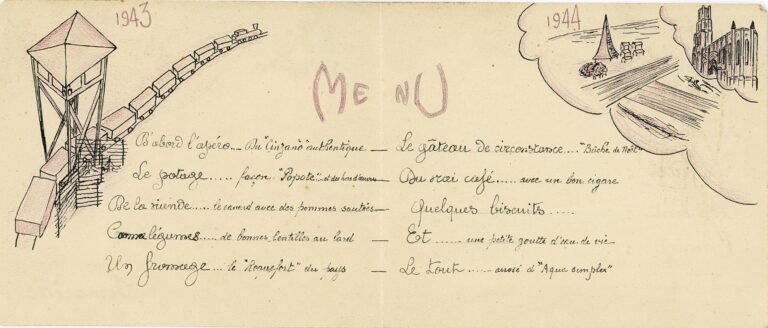 1943
1944
MENU
D'abord l'apéro.... Du "Cinzano" authentique —
Le potage..... façon "Popote"
De la viande..... le canard avec des pommes sautées —
Comme légumes..... de bonnes lentilles au lard —
Un fromage.... le "Roquefort" du pays —
Le gâteau de circonstance.... "Bûche de Noël"
Du vrai café..... avec un bon cigare
Quelques biscuits.....
Et ...... une petite goutte d'eau de vie
Le tout..... arrosé d'"Aqua simplex"